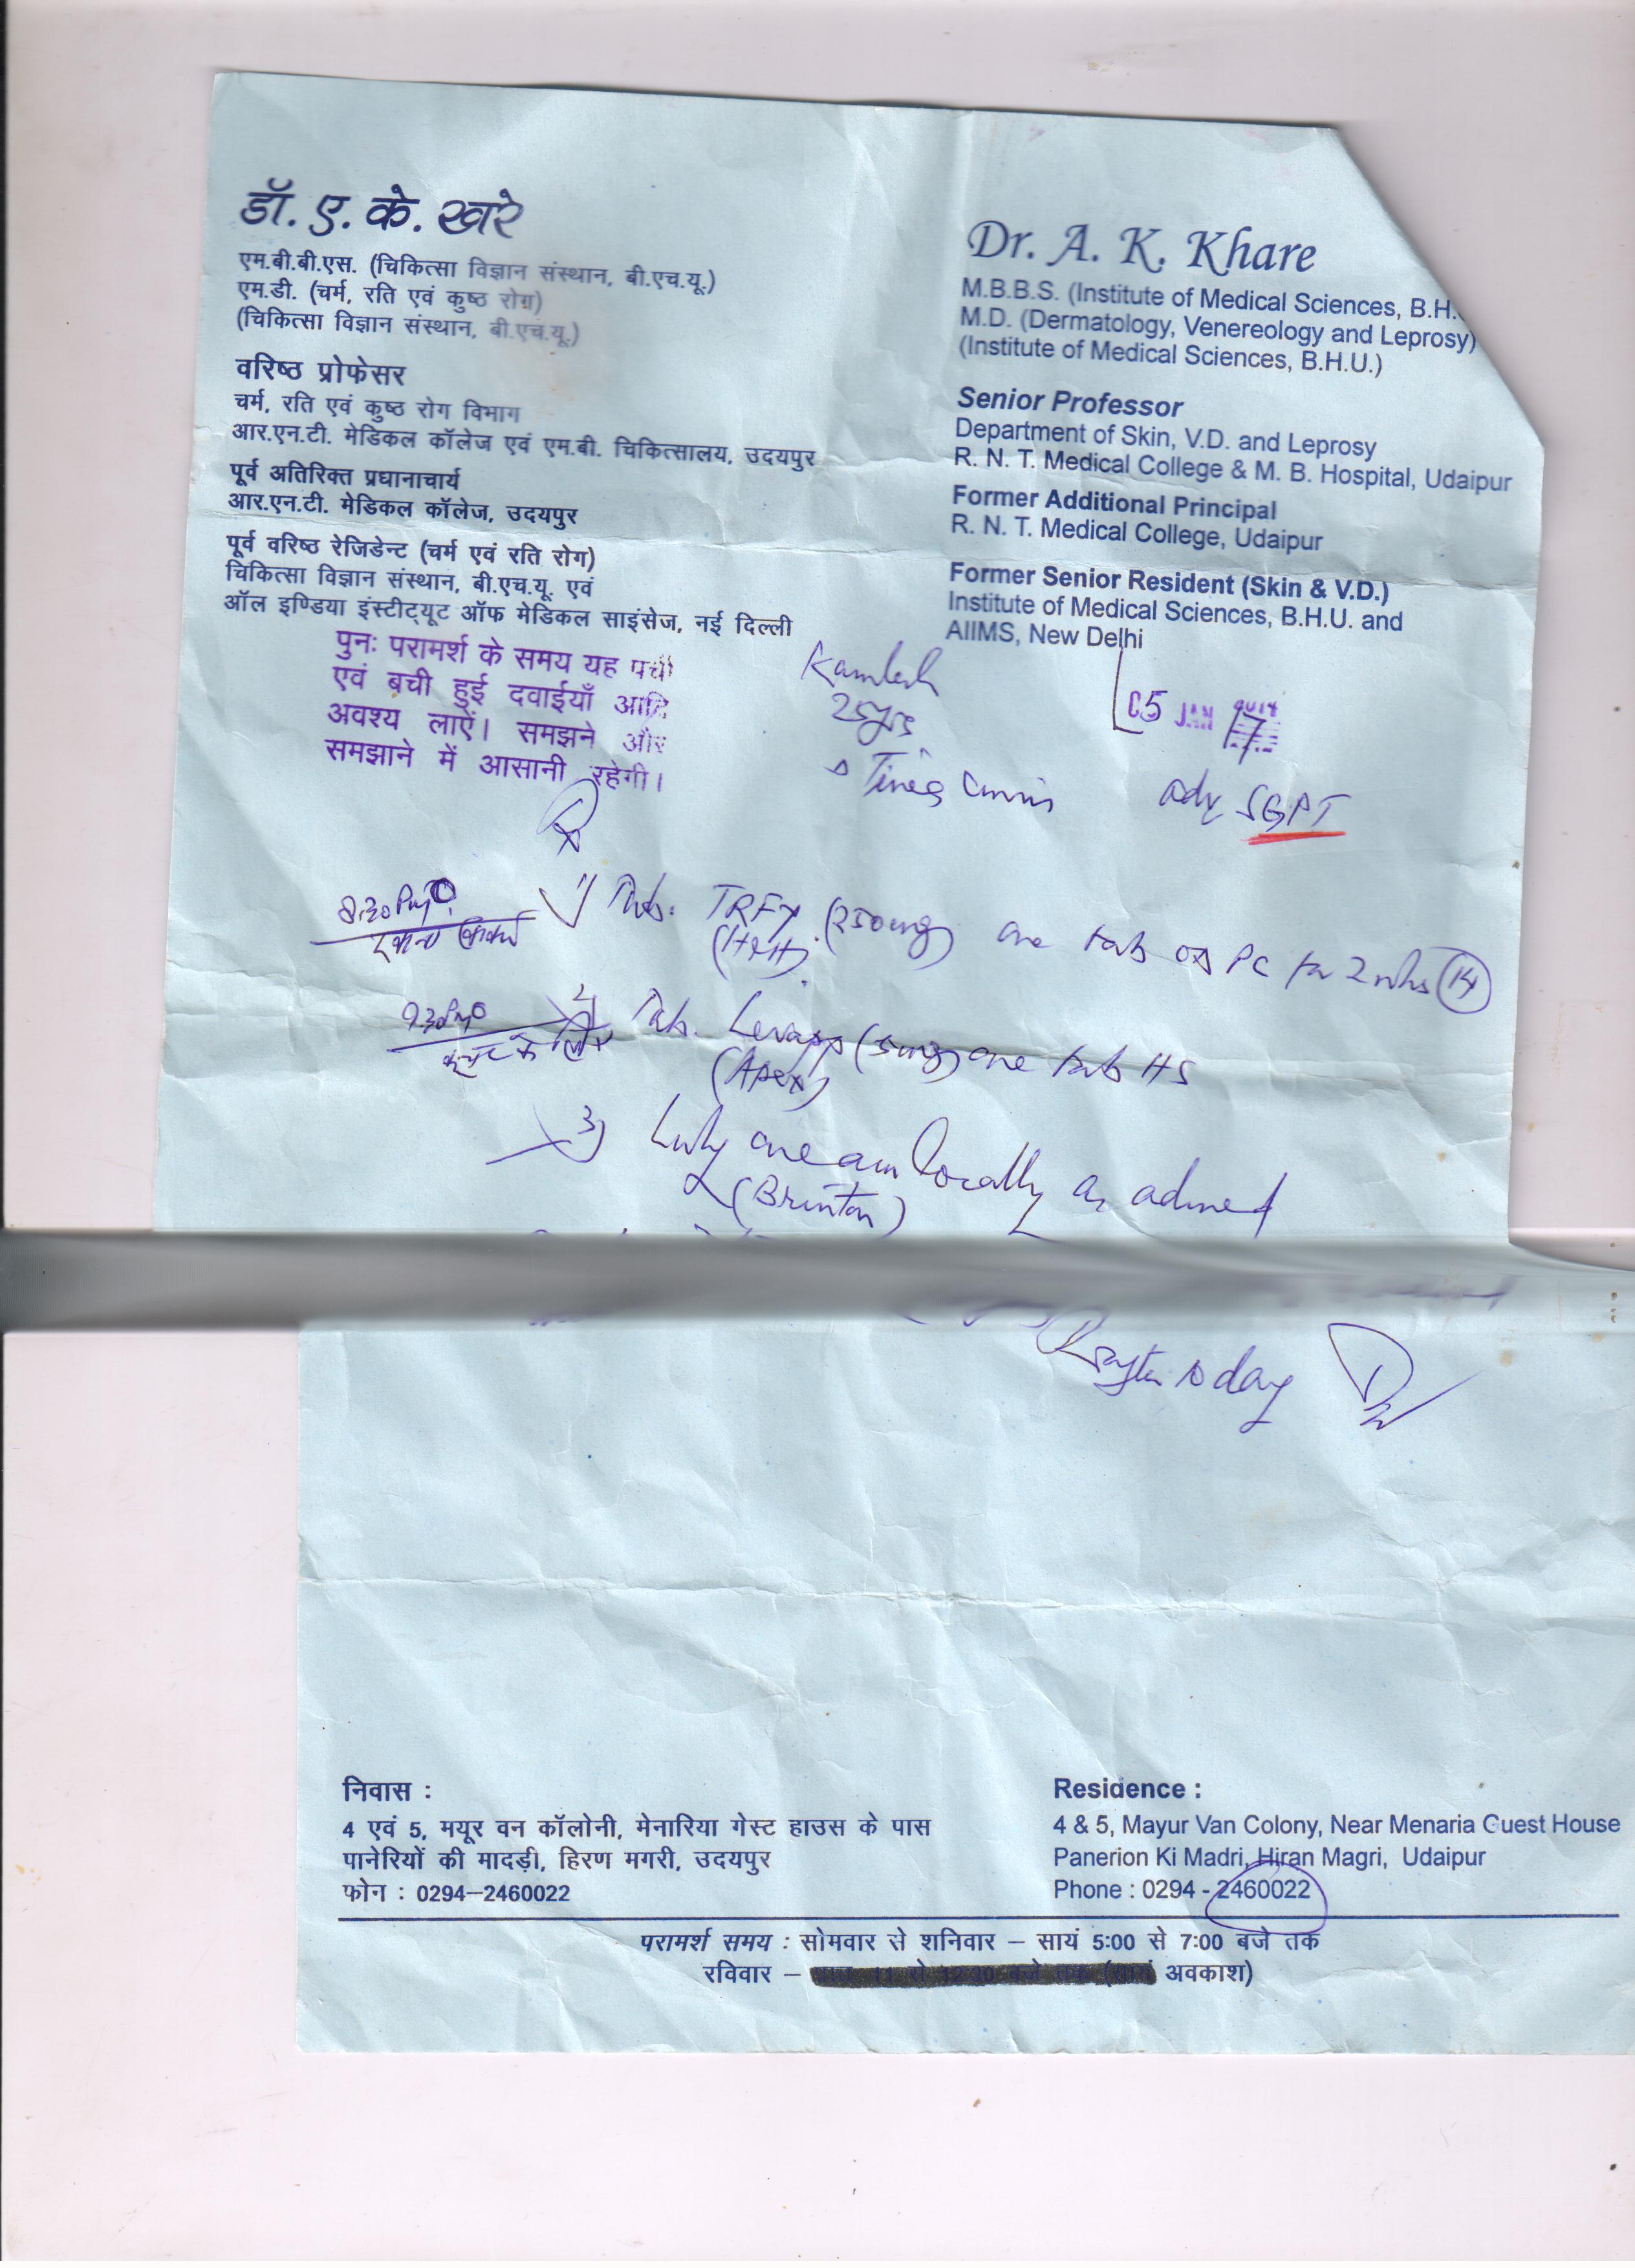 डॉ. ए. के. खरे
एम.बी.बी.एस. (चिकित्सा विज्ञान संस्थान, बी.एच.यू.)
एम.डी. (चर्म, रति एवं कुष्ठ रोग)
(चिकित्सा विज्ञान संस्थान, बी.एच.यू.)
वरिष्ठ प्रोफेसर
चर्म, रति एवं कुष्ठ रोग विभाग
आर.एन.टी. मेडिकल कॉलेज एवं एम.बी. चिकित्सालय, उदयपुर
पूर्व अतिरिक्त प्रधानाचार्य
आर.एन.टी. मेडिकल कॉलेज, उदयपुर
पूर्व वरिष्ठ रेजिडेन्ट (चर्म एवं रति रोग)
चिकित्सा विज्ञान संस्थान, बी.एच.यू. एवं
ऑल इण्डिया इंस्टीट्यूट ऑफ मेडिकल साइंसेज, नई दिल्ली
Dr. A. K. Khare
M.B.B.S. (Institute of Medical Sciences, B.H.
M.D. (Dermatology, Venereology and Leprosy)
(Institute of Medical Sciences, B.H.U.)
Senior Professor
Department of Skin, V.D. and Leprosy
R. N. T. Medical College & M. B. Hospital, Udaipur
Former Additional Principal
R. N. T. Medical College, Udaipur
Former Senior Resident (Skin & V.D.)
Institute of Medical Sciences, B.H.U. and
AIIMS, New Delhi
पुनः परामर्श के समय यह पर्ची
एवं बची हुई दवाईयाँ आदि
अवश्य लाऐं। समझने और
समझाने में आसानी रहेगी।
Kamlesh
25yrs
05 JAN 17
Tinea Cruris
adv SGPT
8:30 Pm
1) Tab. (250mg) one tab OD PC for 2 wks 14
9.30Pm
2) Tab. (5mg) one tab HS
(Apex)
3) Luly cream locally as advised
(Brinton)
R after 10 day
निवास :
4 एवं 5, मयूर वन कॉलोनी, मेनारिया गेस्ट हाउस के पास
पानेरियों की मादड़ी, हिरण मगरी, उदयपुर
फोन : 0294–2460022
Residence :
4 & 5, Mayur Van Colony, Near Menaria Guest House
Panerion Ki Madri, Hiran Magri, Udaipur
Phone : 0294 - 2460022
परामर्श समय : सोमवार से शनिवार – सायं 5:00 से 7:00 बजे तक
रविवार – अवकाश)